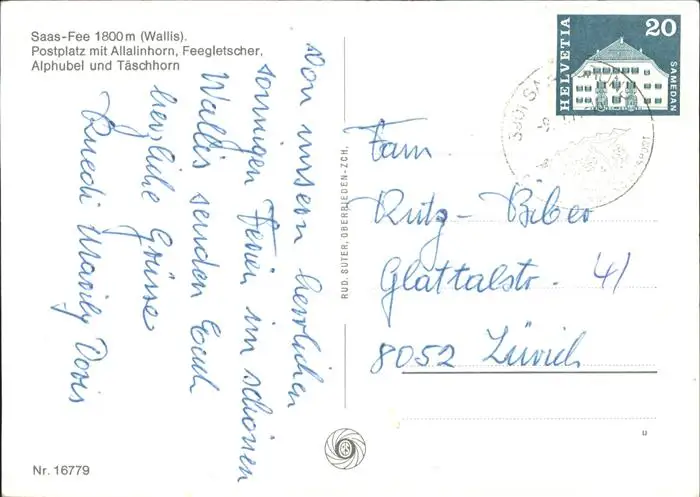 Saas-Fee 1800 m (Wallis).
Postplatz mit Allalinhorn, Feegletscher,
Alphubel und Täschhorn
Von unsern herrlichen
sonnigen Ferien im schönen
Wallis senden Euch
herzliche Grüsse
Ruedi Marily Doris
Nr. 16779
RUD. SUTER, OBERRIEDEN-ZCH.
HELVETIA
20
SAMEDAN
Fam
Rutz-Biber
Glattalstr. 41
8052 Zürich